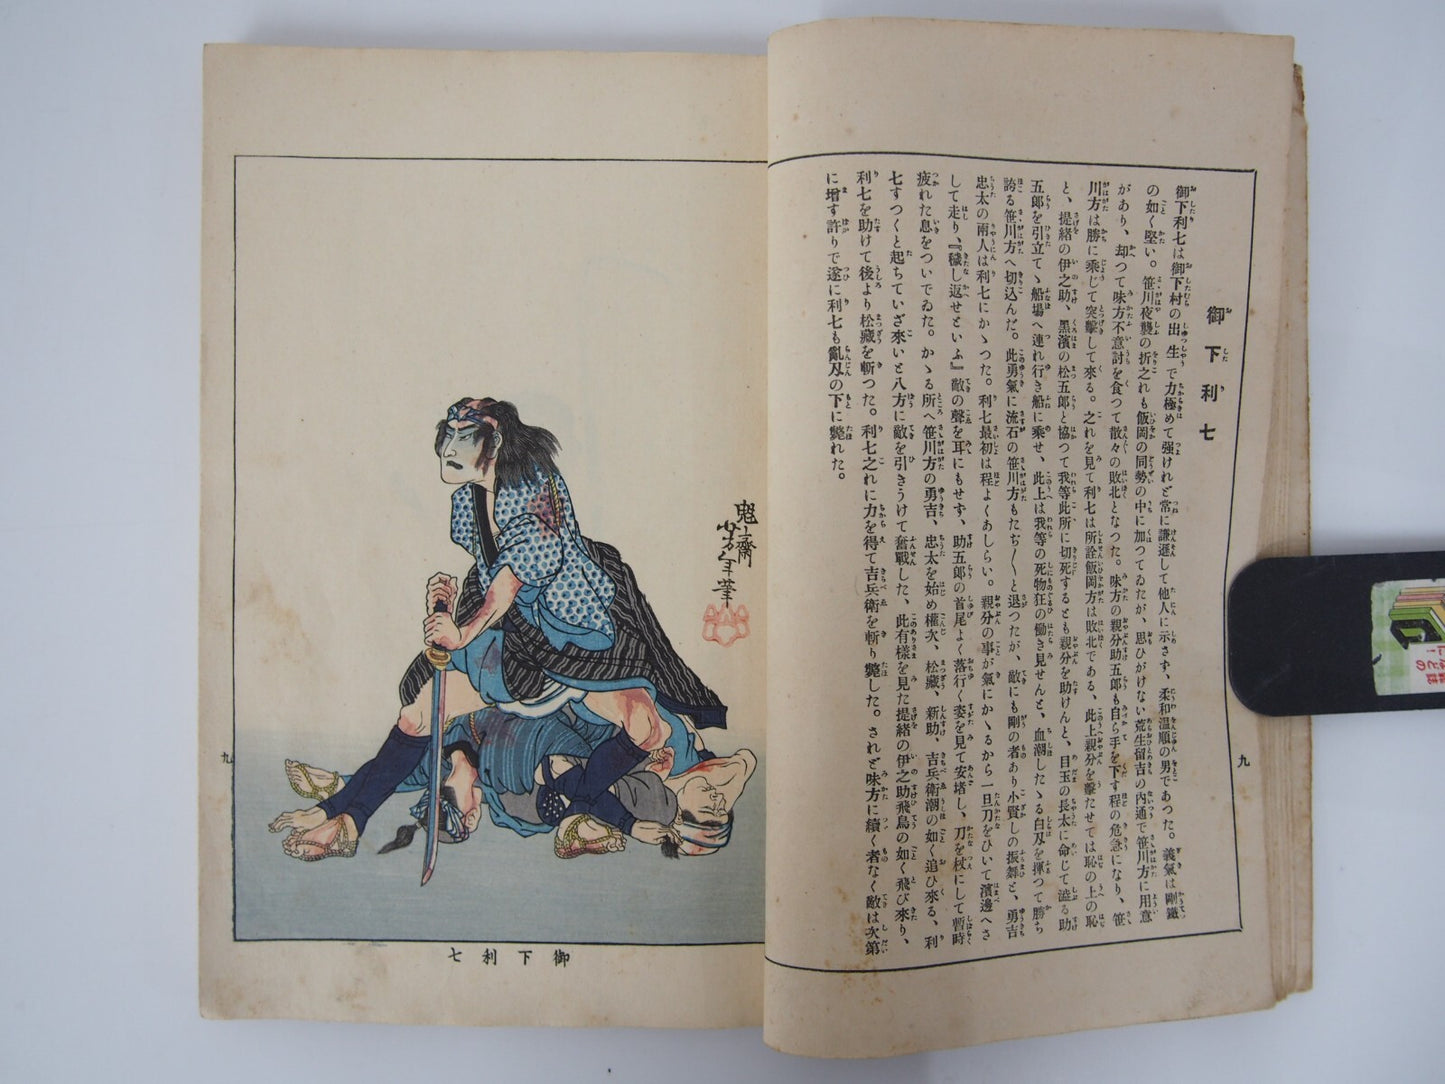 御下利七
御下利七は御下村の出生で力極めて强けれど常に謙遜して他人に示さず、柔和溫順の男であつた。義氣は剛鐵
の如く堅い。笹川夜襲の折之れも飯岡の同勢の中に加つてゐたが、思ひがけない荒生留吉の內通で笹川方に用意
があり、却つて味方不意討を食つて散々の敗北となつた。味方の親分助五郎も自ら手を下す程の危急になり、笹
川方は勝に乘じて突擊して來る。之れを見て利七は所詮飯岡方は敗北である、此上親分を擊たせては恥の上の恥
と、提緖の伊之助、黑濱の松五郎と協つて我等此所に切死するとも親分を助けんと、目玉の長太に命じて澁る助
五郎を引立てゝ船場へ連れ行き船に乘せ、此上は我等の死物狂の働き見せんと、血潮したゝる白刄を揮つて勝ち
誇る笹川方へ切込んだ。此勇氣に流石の笹川方もたぢ〱と退つたが、敵にも剛の者あり小賢しの振舞と、勇吉
忠太の兩人は利七にかゝつた。利七最初は程よくあしらい。親分の事が氣にかゝるから一旦刀をひいて濱邊へさ
して走り、『穢し返せといふ』敵の聲を耳にもせず、助五郎の首尾よく落行く姿を見て安堵し、刀を杖にして暫時
疲れた息をついでゐた。かゝる所へ笹川方の勇吉、忠太を始め權次、松藏、新助、吉兵衞潮の如く追ひ來る、利
七すつくと起ちていざ來いと八方に敵を引きうけて奮戰した、此有樣を見た提緖の伊之助飛鳥の如く飛び來り、
利七を助けて後より松藏を斬つた。利七之れに力を得て吉兵衞を斬り斃した。されど味方に續く者なく敵は次第
に增す許りで遂に利七も亂刄の下に斃れた。
九
魁齋
芳年筆
御下利七
九